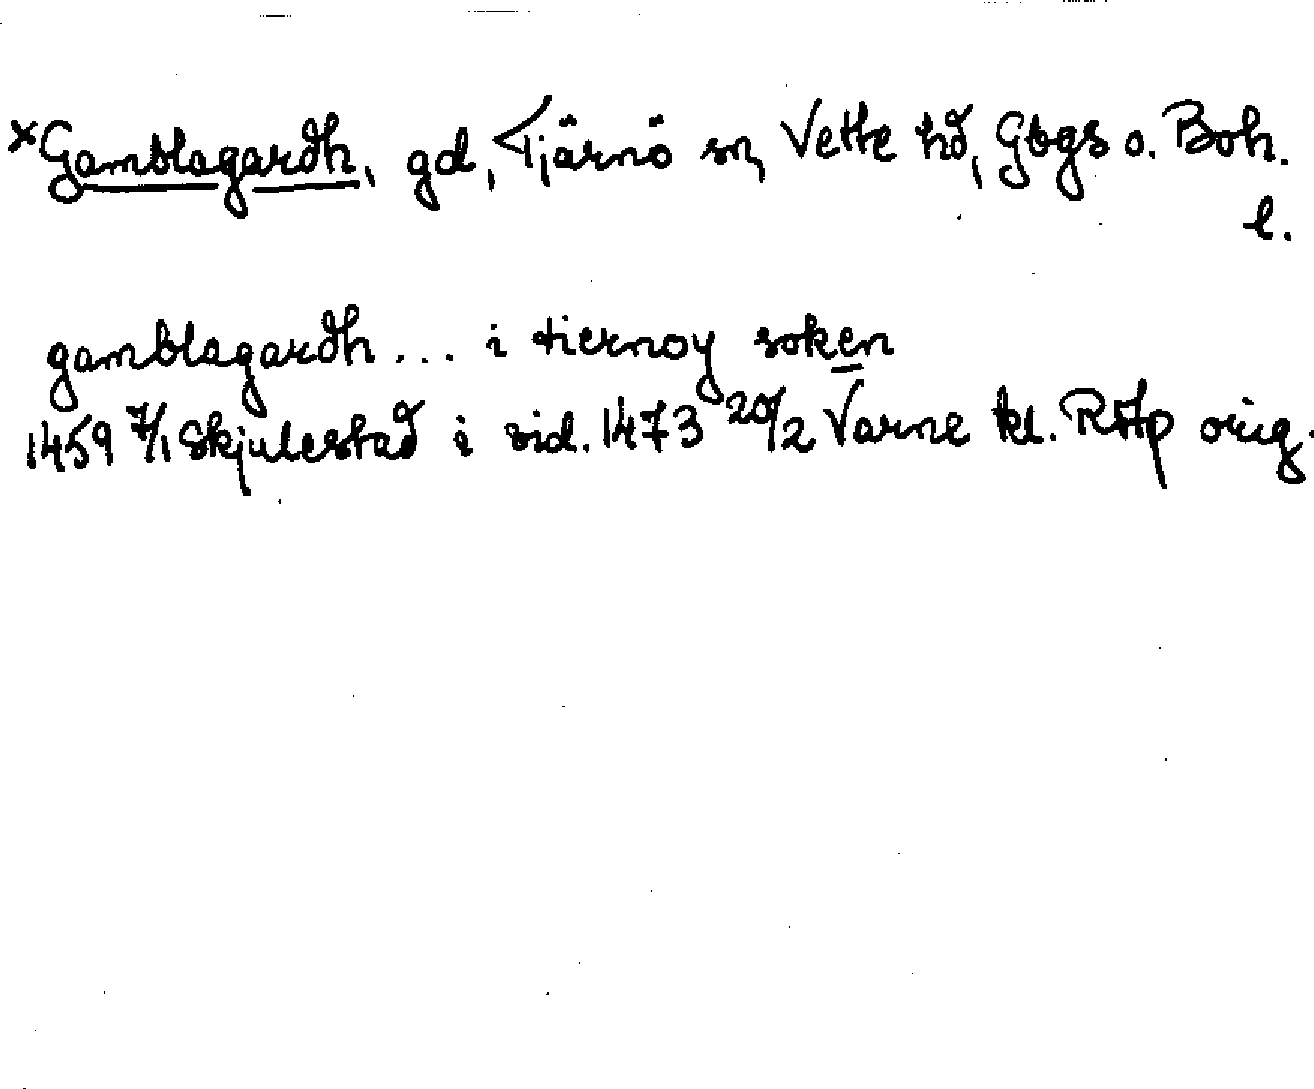 ×Gamblagardh, gd, Tjärnö sn, Vette hd, Gbgs o. Boh.
l.
gamblagardh... i tiernoy soken
1459 7/1 Skjulestad i vid. 1473 20/2 Varne kl. RAp orig.